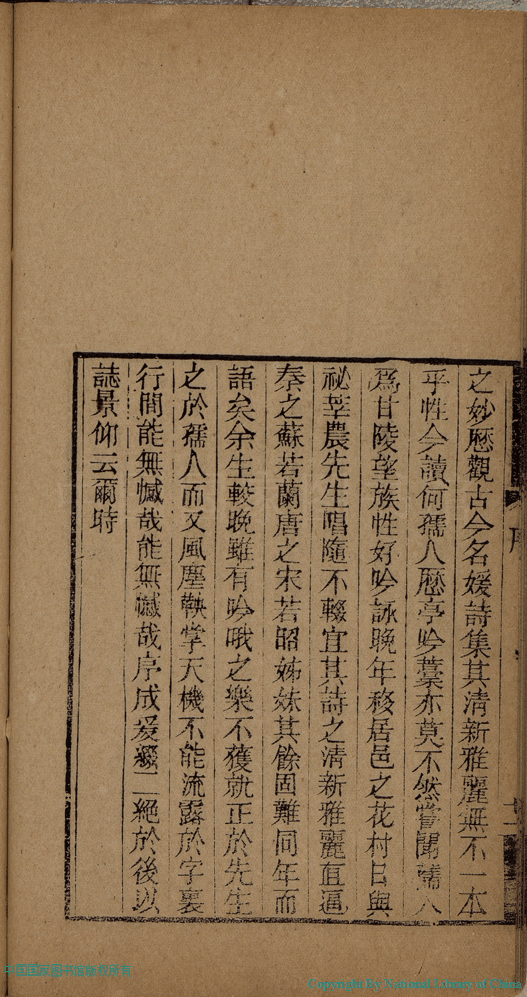 之妙歷觀古今名媛詩集其清新雅麗無不一本
乎性今讀何孺人歷亭吟藳亦莫不然嘗聞孺人
爲甘陵望族性好吟詠晚年移居邑之花村日與
祕莘農先生唱隨不輟宜其詩之清新雅麗直逼
秦之蘇若蘭唐之宋若昭姊妹其餘固難同年而
語矣余生較晚雖有吟哦之樂不獲就正於先生
之於孺人而又風塵鞅掌天機不能流露於字裏
行間能無憾哉能無憾哉序成爰綴二絕於後以
誌景仰云爾時
序
中国国家图书馆
Copyright by National Library of China